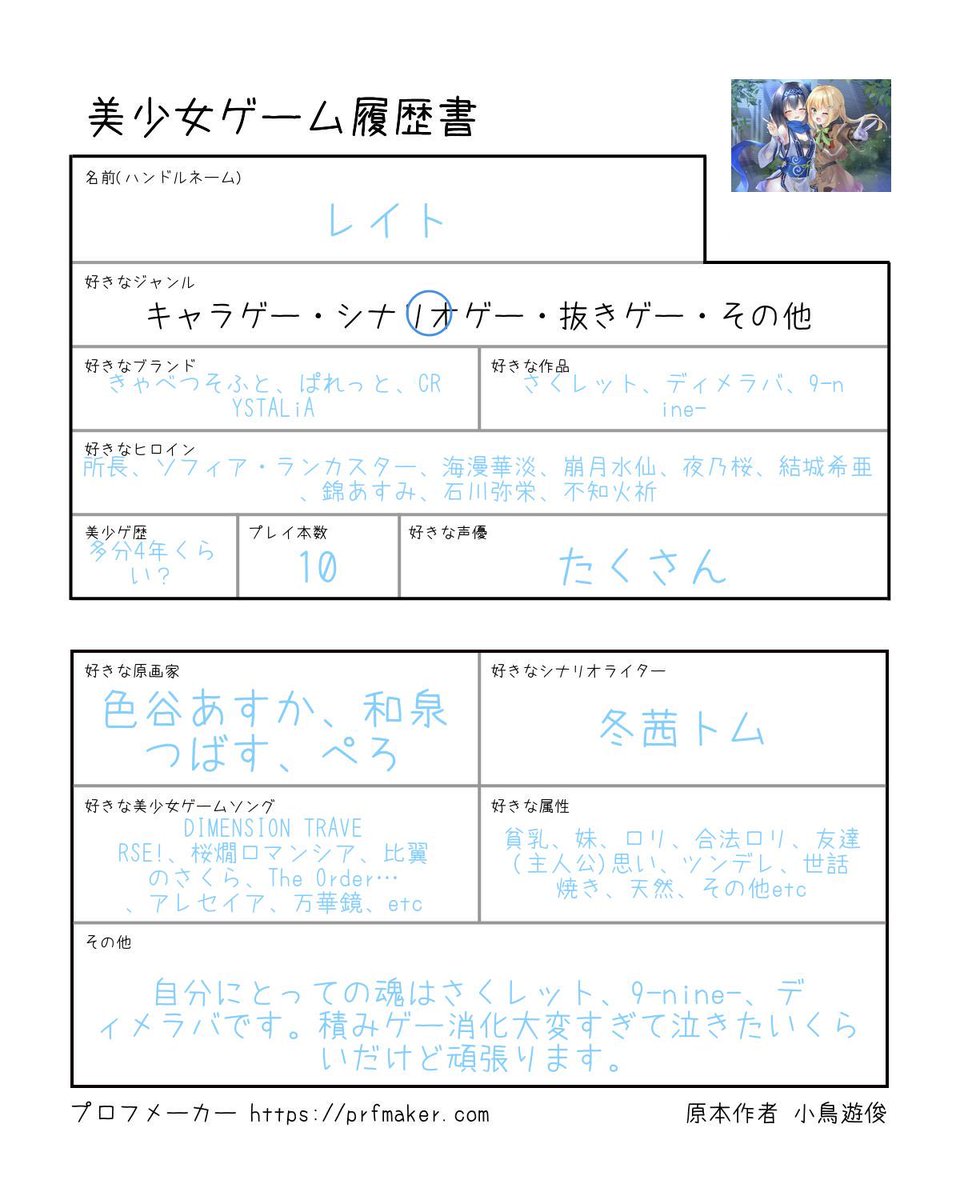 美少女ゲーム履歴書
名前(ハンドルネーム)
レイト
好きなジャンル
キャラゲー・シナリオゲー・抜きゲー・その他
好きなブランド
きゃべつそふと、ぱれっと、CR
YSTALiA
好きな作品
さくレット、ディメラバ、9-n
ine-
好きなヒロイン
所長、ソフィア・ランカスター、海漫華淡、崩月水仙、夜乃桜、結城希亜
、錦あすみ、石川弥栄、不知火祈
美少ゲ歴
多分4年くら
い？
プレイ本数
10
好きな声優
たくさん
好きな原画家
色谷あすか、和泉
つばす、ぺろ
好きなシナリオライター
冬茜トム
好きな美少女ゲームソング
DIMENSION TRAVE
RSE!、桜燗ロマンシア、比翼
のさくら、The Order…
、アレセイア、万華鏡、etc
好きな属性
貧乳、妹、ロリ、合法ロリ、友達
(主人公)思い、ツンデレ、世話
焼き、天然、その他etc
その他
自分にとっての魂はさくレット、9-nine-、デ
ィメラバです。積みゲー消化大変すぎて泣きたいくら
いだけど頑張ります。
プロフメーカー https://prfmaker.com
原本作者 小鳥遊俊